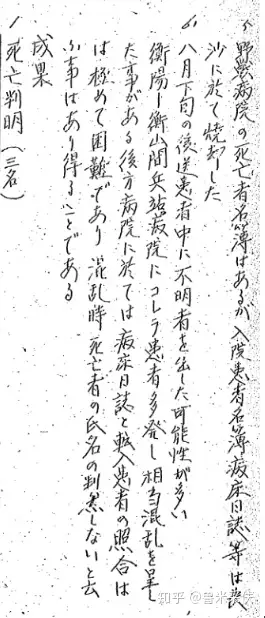 5、野戰病院の死亡者名簿はあるが入院患者名簿病床日誌等は長
沙に於て焼却した
6、八月下旬の後送患者中に不明者を出した可能性が多い
衡陽ー衡山間兵站病院にコレラ患者多発し相当混乱を呈し
た事がある後方病院に於ては病床日誌と転入患者の照合は
は極めて困難であり混乱時死亡者の氏名の判然しないと云
ふ事はあり得ることである
成果
1、死亡判明(三名)
知乎 @鲁米